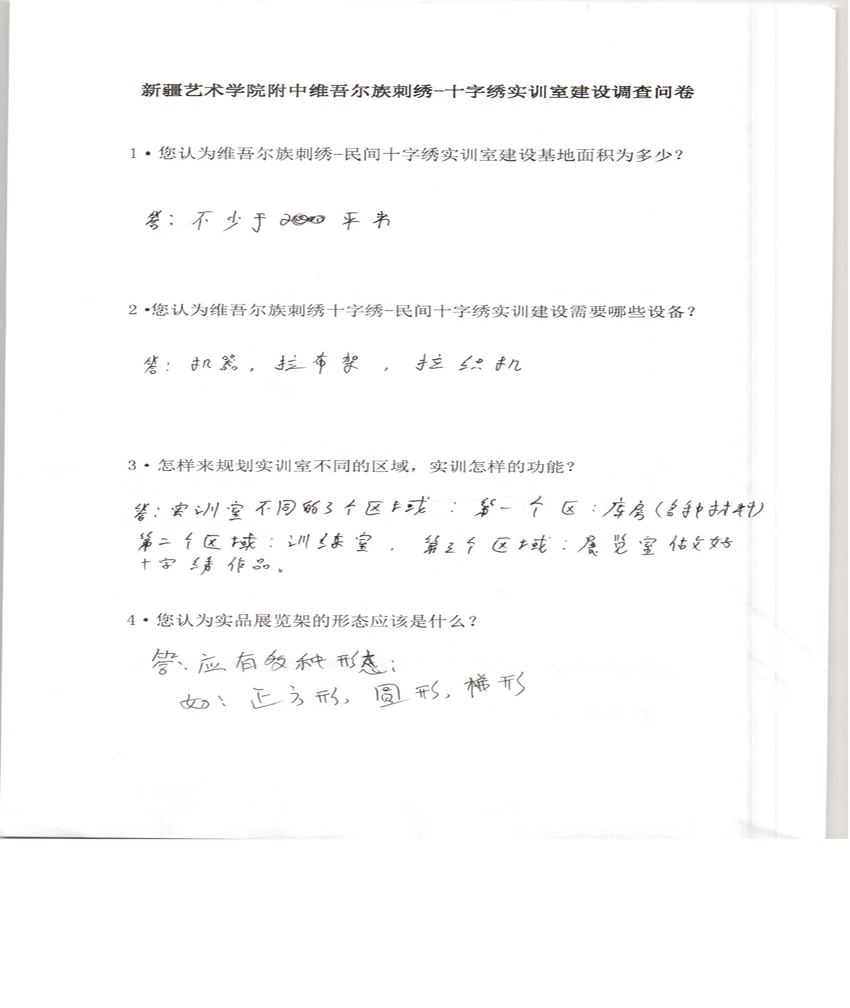 新疆艺术学院附中维吾尔族刺绣-十字绣实训室建设调查问卷
1·您认为维吾尔族刺绣-民间十字绣实训室建设基地面积为多少？
答：不少于200平米
2·您认为维吾尔族刺绣十字绣-民间十字绣实训建设需要哪些设备？
答：机器，拉布架，拉织机
3·怎样来规划实训室不同的区域，实训怎样的功能？
答：实训室不同的3个区域：第一个区：库房（各种材料）
第二个区域：训练室，第三个区域：展览室 做好
十字绣作品。
4·您认为实品展览架的形态应该是什么？
答：应有多种形态；
如：正方形，圆形，梯形